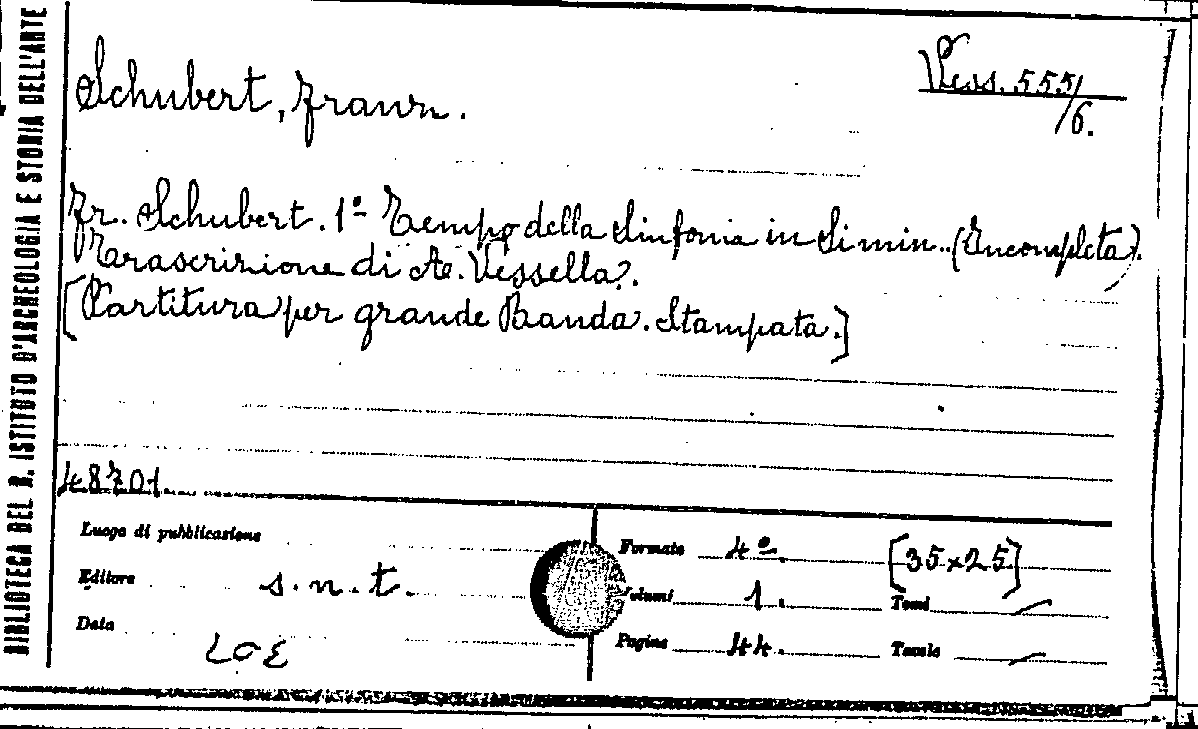 BIBLIOTECA DEL R. ISTITUTO D'ARCHEOLOGIA E STORIA DELL'ARTE
Schubert, Franz.
Vess. 555/6.
Fr. Schubert. 1º Tempo della Sinfonia in Si min.. (Incompleta).
Trascrizione di A. Vessella.
[Partitura per grande Banda. Stampata.]
48701.
Luogo di pubblicazione
Editore s.n.t.
Data
Formato 4º. [35x25]
Volumi 1. Tomi /
Pagine 44. Tavole /